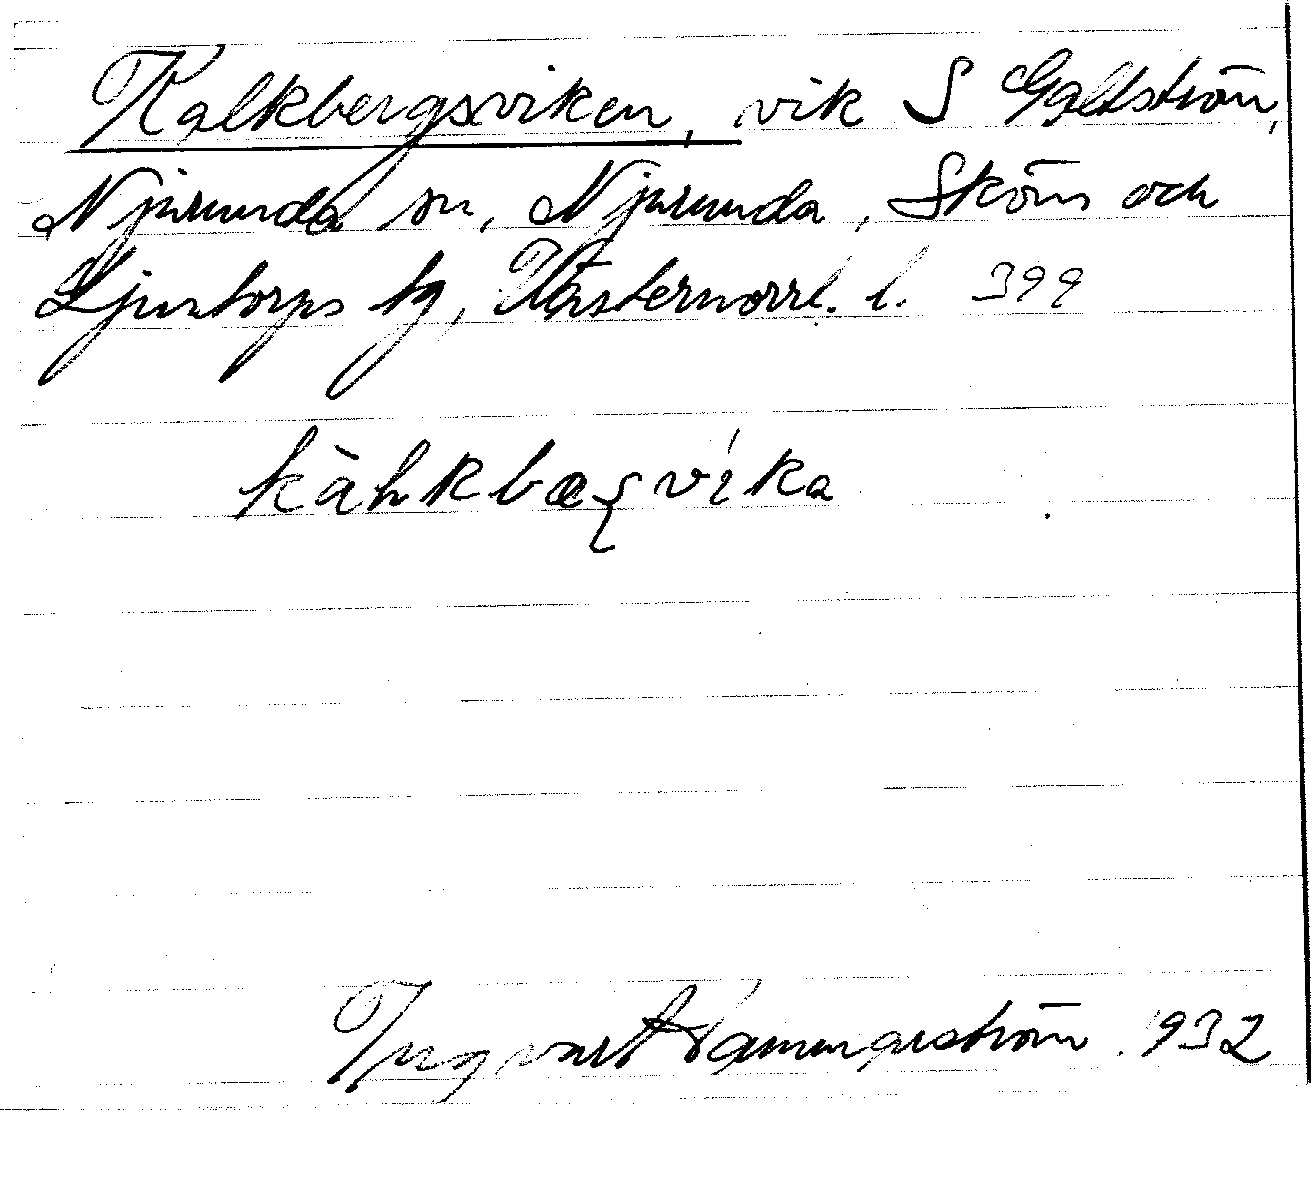 Kalkbergsviken, vik S Galtström,
Njurunda sn, Njurunda, Sköns och
Ljustorps tg, Västernorrl. l. 399
kàhkbæʂvíka
Ingvart Hammarström 1932